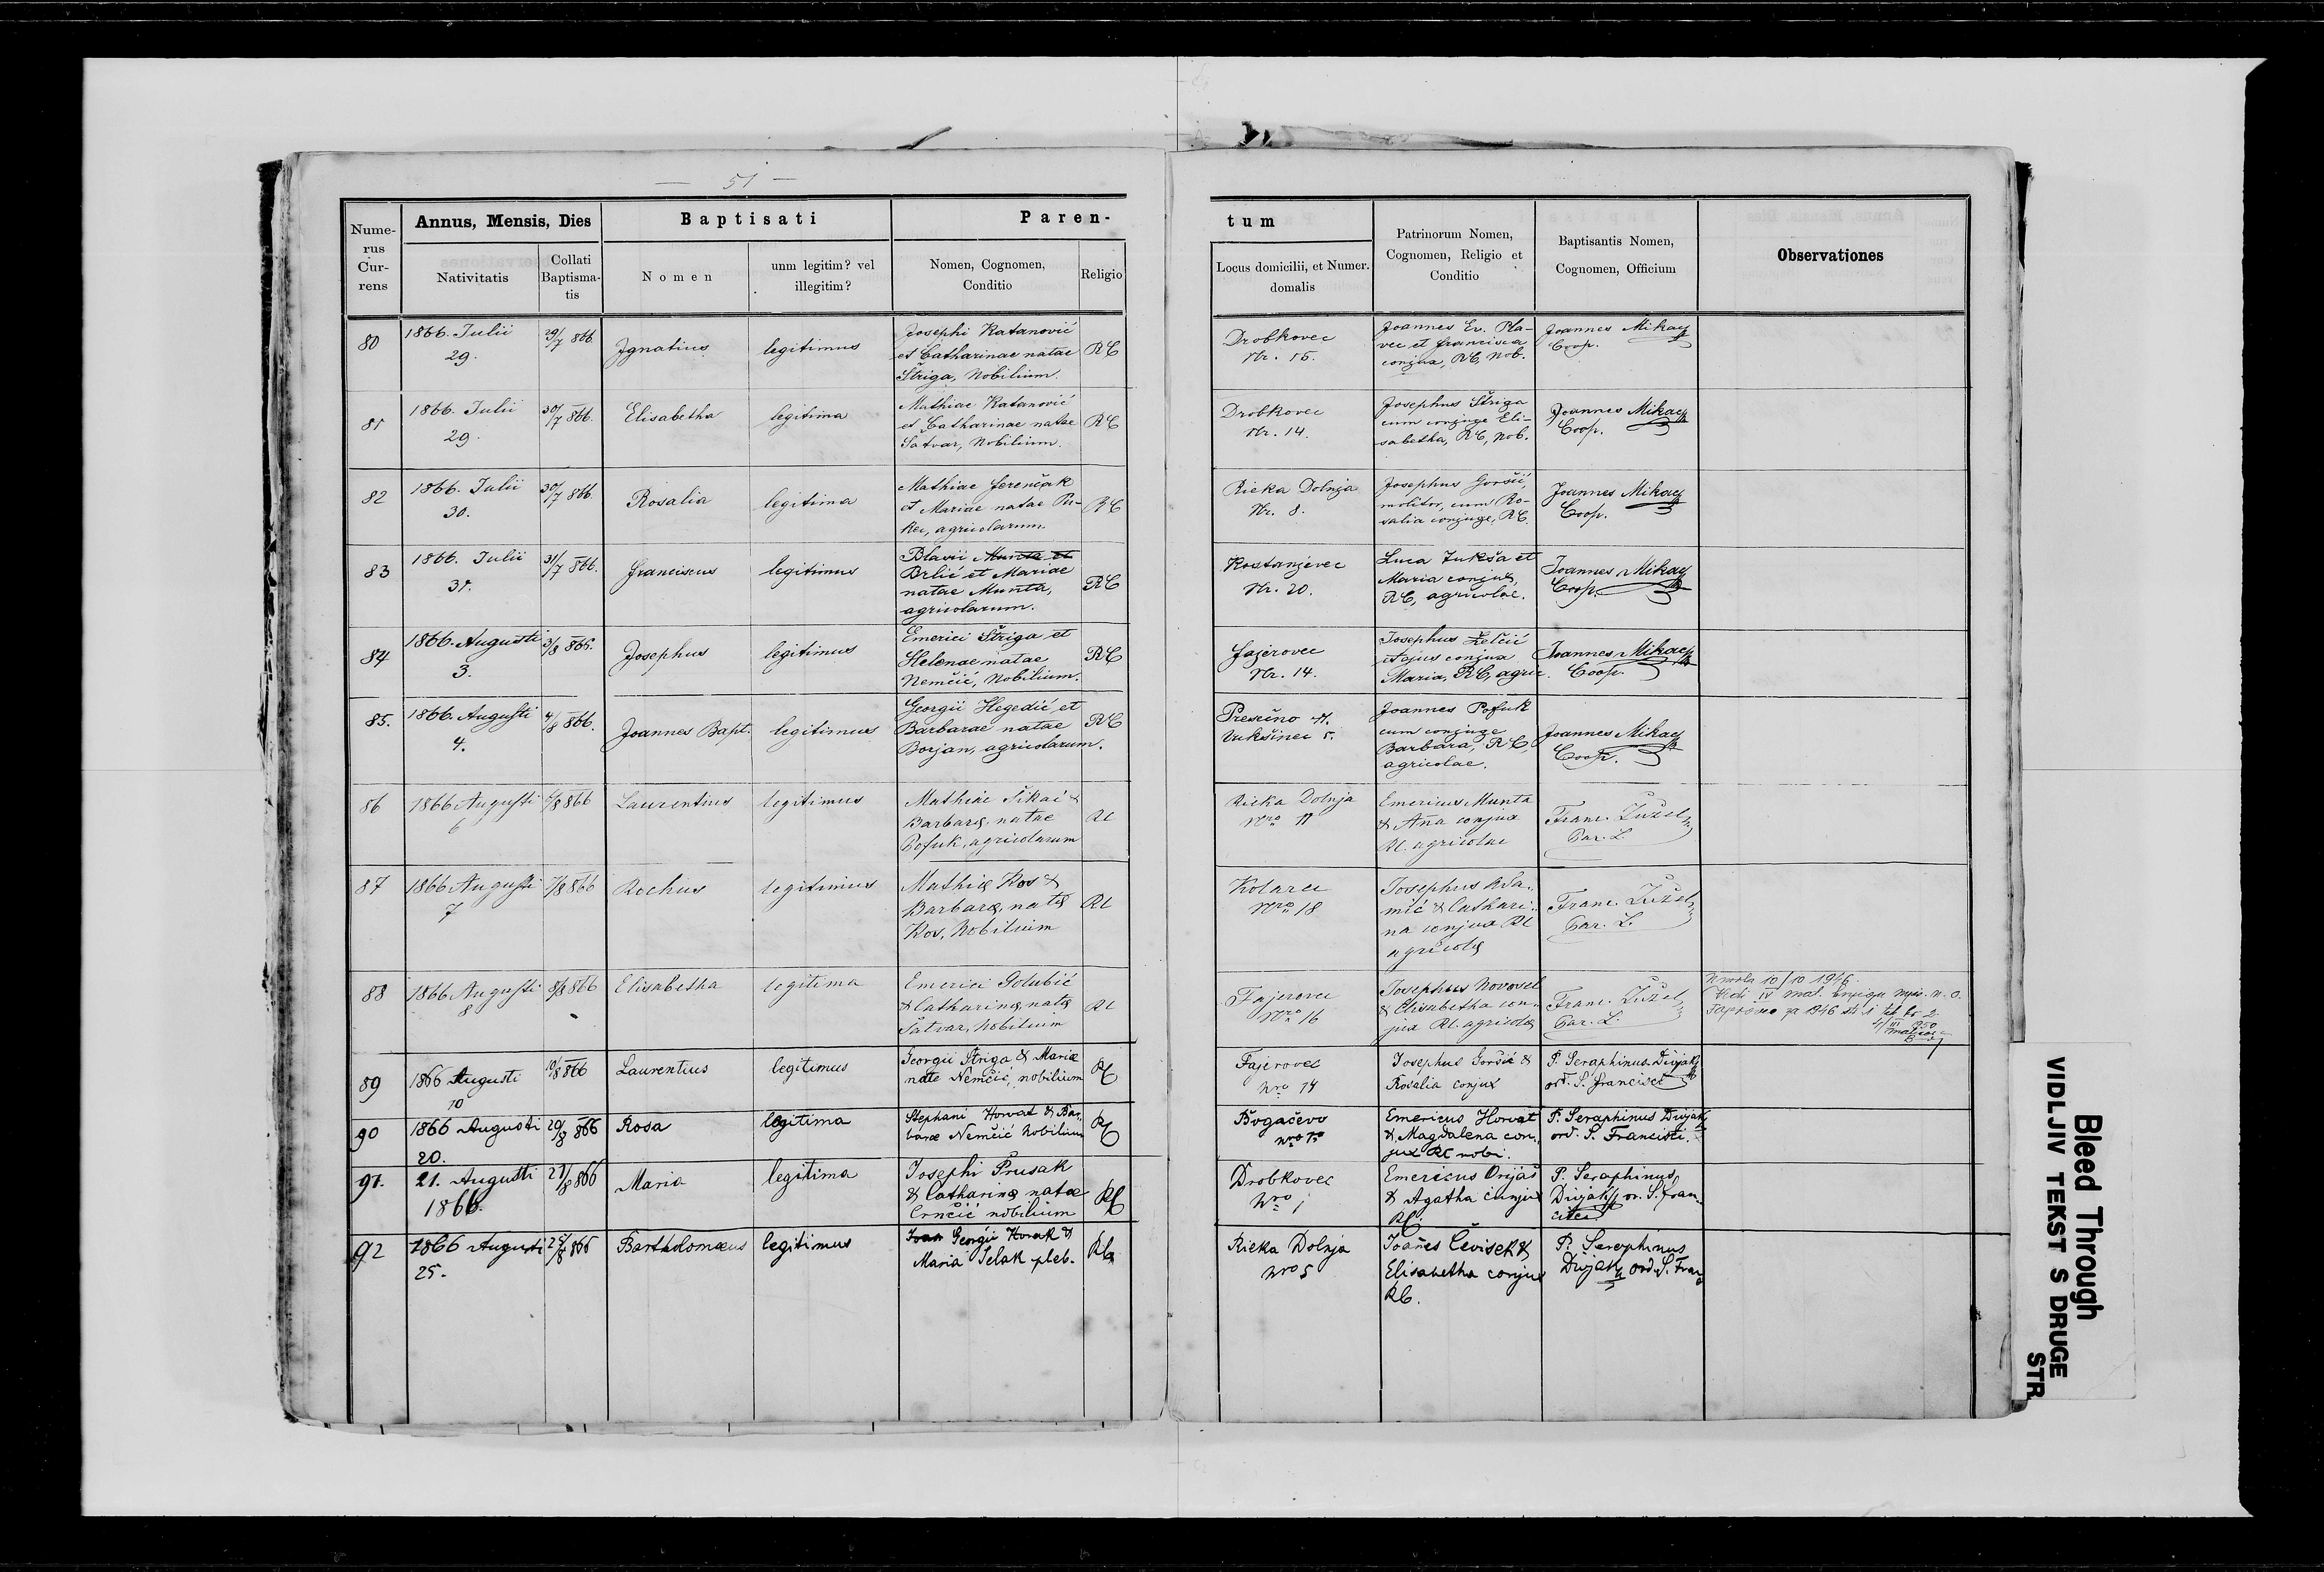 — 51 —
Nume-
rus
Cur-
rens
Annus, Mensis, Dies
Nativitatis
Collati
Baptisma-
tis
Baptisati
Nomen
unm legitim? vel
illegitim?
Paren-
Nomen, Cognomen,
Conditio
Religio
tum
Locus domicilii, et Numer.
domalis
Patrinorum Nomen,
Cognomen, Religio et
Conditio
Baptisantis Nomen,
Cognomen, Officium
Observationes
80
1866. Julii
29.
29/7 866
Ignatius
legitimus
Josephi Katanović
et Catharinae natae
Štriga, Nobilium.
RC
Drobkovec
Nr. 15.
Joannes Ev. Pla-
vec et Francisca
conjux, RC, Nob.
Joannes Mikacy
Coop.
81
1866. Julii
29.
30/7 866.
Elisabetha
legitima
Mathiae Katanović
et Catharinae natae
Satvar, Nobilium.
RC
Drobkovec
Nr. 14.
Josephus Štriga
cum conjuge Eli-
sabetha, RC, Nob.
Joannes Mikacy
Coop.
82
1866. Julii
30.
30/7 866.
Rosalia
legitima
Mathiae Ferenčak
et Mariae natae Pu-
kec, agricolarum.
RC
Rieka Dolnja
Nr. 8.
Josephus Goršić,
molitor, cum Ro-
salia conjuge, RC.
Joannes Mikacy
Coop.
83
1866. Julii
31.
31/7 866.
Franciscus
legitimus
Blasii Munta et
Brlić et Mariae
natae Munta,
agricolarum.
RC
Kostanjevec
Nr. 20.
Luca Jukša et
Maria conjux,
RC, agricolae.
Joannes Mikacy
Coop.
84
1866. Augusti
3.
3/8 866.
Josephus
legitimus
Emerici Štriga et
Helenae natae
Nemčić, Nobilium.
RC
Fajerovec
Nr. 14.
Josephus Želčić
et ejus conjux
Maria, RC, agric.
Joannes Mikacy
Coop.
85.
1866. Augusti
4.
4/8 866.
Joannes Bapt.
legitimus
Georgii Hegedić et
Barbarae natae
Borjan, agricolarum.
RC
Presečno N.
Vukšinec 5.
Joannes Pofuk
cum conjuge
Barbara, RC,
agricolae.
Joannes Mikacy
Coop.
86
1866 Augusti
6
6/8 866
Laurentius
legitimus
Mathiae Šikać &
Barbarę, natae
Pofuk, agricolarum
RC
Rieka Dolnja
Nro 11
Emericus Munta
& Aña conjux
RC. agricolae
Franc. Žužel
Par. L.
87
1866 Augusti
7
7/8 866
Rochus
legitimus
Mathię Kos &
Barbarę, natę
Kos, Nobilium
RC
Kolarec
Nro 18
Josephus Ada-
mić & Cathari-
na conjux RC
agricolę
Franc. Žužel
Par. L.
88
1866 Augusti
8
8/8 866
Elisabetha
legitima
Emerici Golubić
& Catharinę, natę
Šatvar, Nobilium
RC
Fajerovec
Nro 16
Josephus Novosel
& Elisabetha con-
jux RC. agricolę
Franc. Žužel
Par. L.
Umrla 10/10 1946
89
1866 Augusti
10
10/8 866
Laurentius
legitimus
Georgii Štriga & Mariæ
nate Nemčić, nobilium
RC
Fajerovec
Nro 14
Josephus Goršić &
Rosalia conjux
P. Seraphinus Divjak
ord. S. Francisci
90
1866 Augusti
20.
20/8 866
Rosa
legitima
Stephani Horvat & Bar-
baræ Nemčić Nobilium
RC
Bogačevo
Emericus Horvat
& Magdalena con-
jux RC nobi.
P. Seraphinus Divjak
ord. S. Francisci.
91.
21. Augusti
1866.
21/8 866
Maria
legitima
Josephi Prusak
& Catharinę natæ
Crnčić nobilium
RC
Drobkovec
Nro 1
Emericus Orijaš
& Agatha conjux
RC.
P. Seraphinus
Divjak or. S. Fran-
cisci
92
1866 Augusti
25.
25/8 866
Bartholomæus
legitimus
Ivan Georgii Horak &
Maria Selak pleb.
RC
Rieka Dolnja
Nro 5
Joañes Čevisek &
Elisabetha conjux
RC.
P. Seraphinus
Divjak ord. S. Fran
Bleed Through
VIDLJIV TEKST S DRUGE
STR